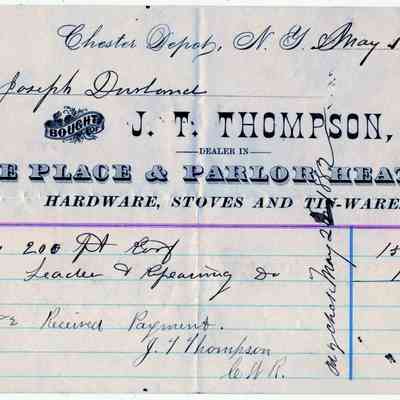 Chester Depot, N. Y. May
Joseph Durland
BOUGHT OF
J. T. THOMPSON,
DEALER IN
E PLACE & PARLOR HEAT
HARDWARE, STOVES AND TIN-WARE
200 ft Roof
Leader & Repairing Do
Received Payment.
J. T Thompson
by check May 2